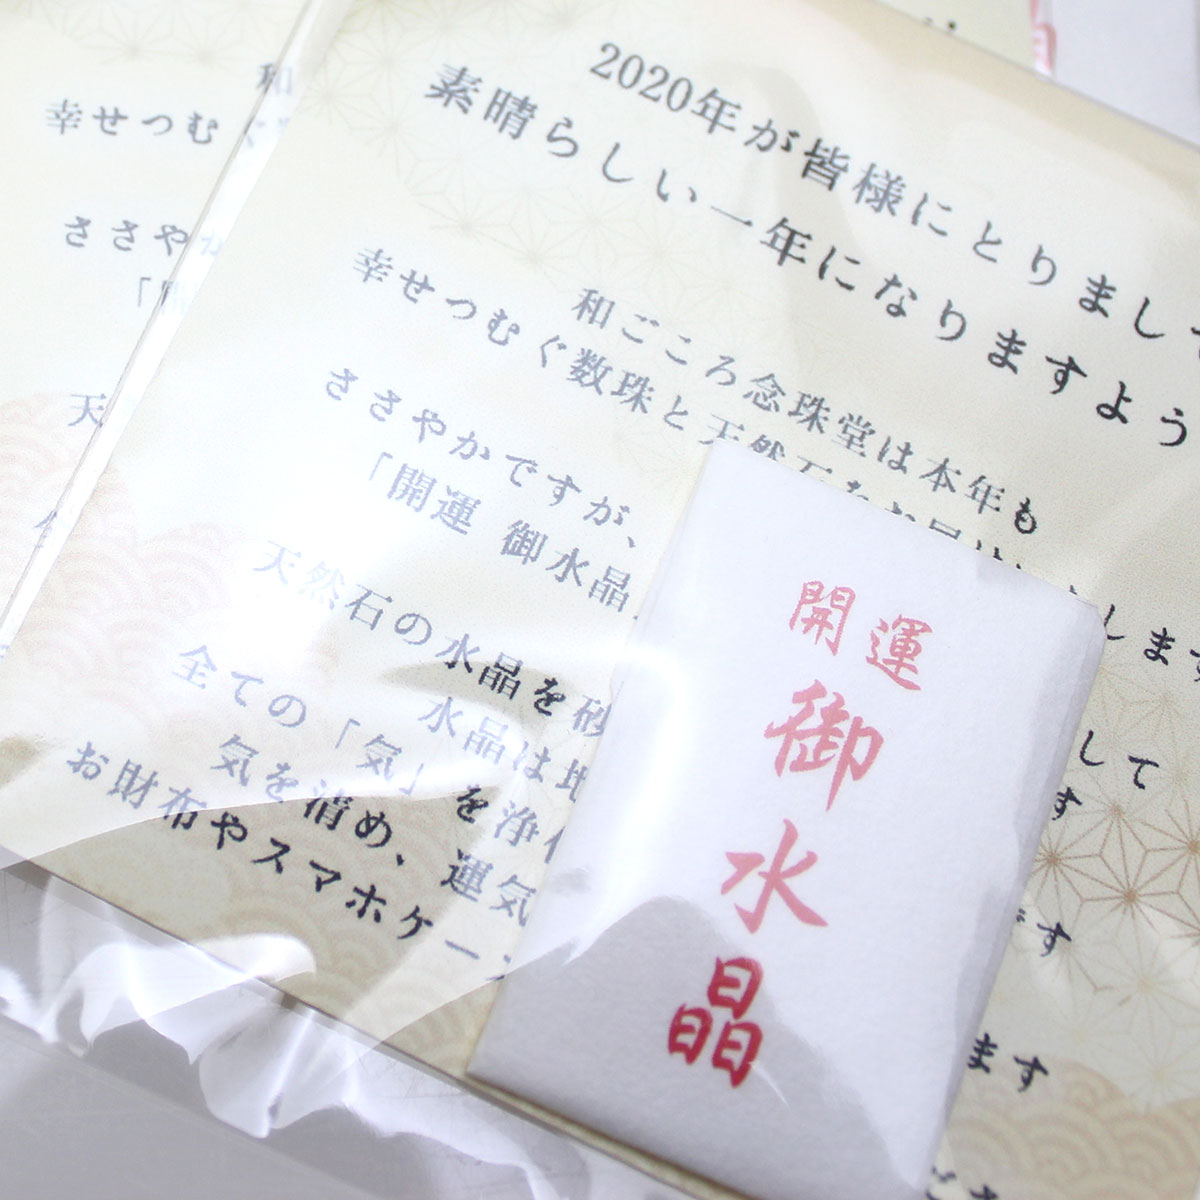 2020年が皆様にとりまし
素晴らしい一年になりますよう
和ごころ念珠堂は本年も
幸せつむぐ数珠と天然石をお届けします
ささやかですが、
「開運 御水晶
天然石の水晶を砂
して
水晶は地
す
全ての「気」を浄化
気を清め、運気
です
お財布やスマホケー
ます
開運
御水晶
幸せつむぐ
ささやか
天